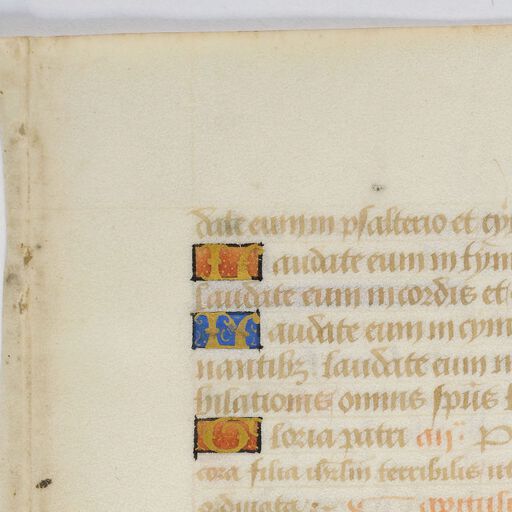 date eum in psalterio et cy
Laudate eum in tym
laudate eum in cordis et
Laudate eum in cym
nantibꝫ laudate eum in
bilationis omnis sp̄us l
Gloria patri añ P
cora filia ihrl̄m terribilis ut
ordinata Capitul